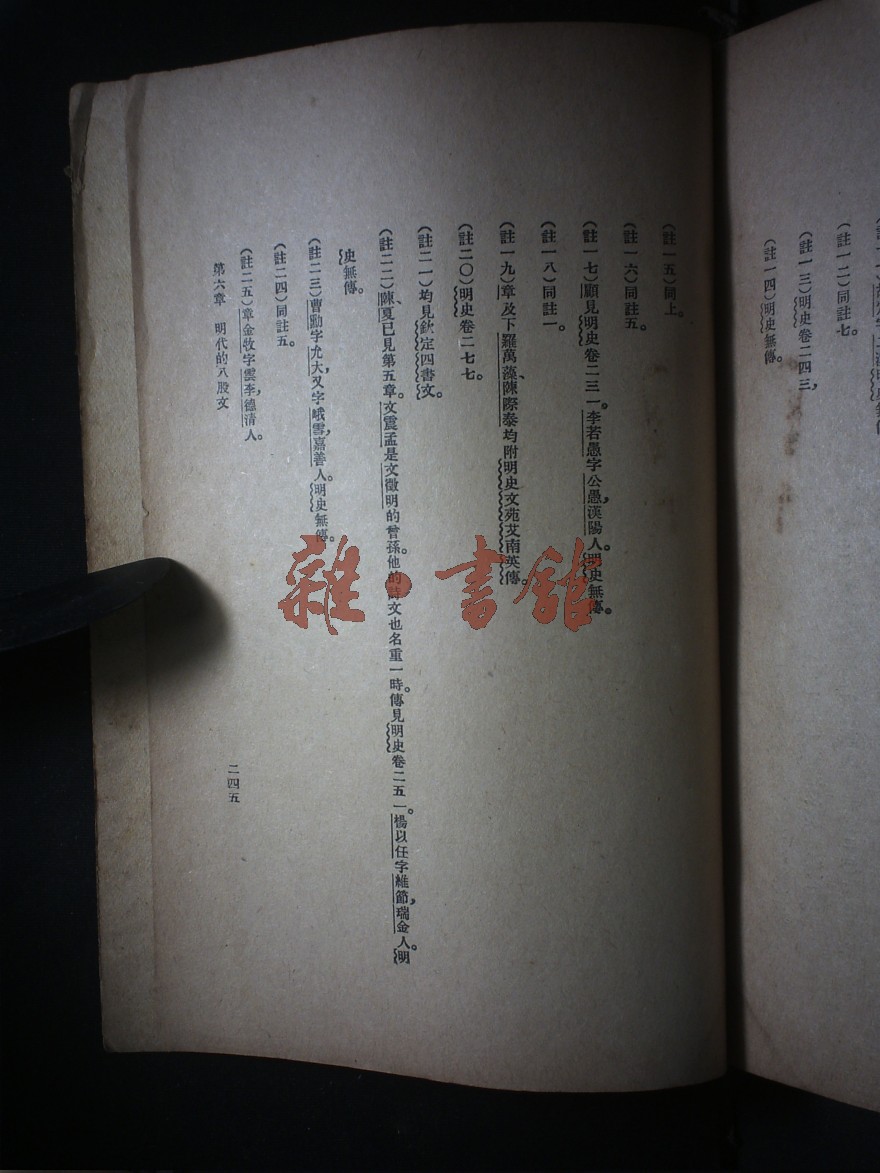 (註一二)同註七。
(註一三)明史卷二四三,
(註一四)明史無傳。
(註一五)同上。
(註一六)同註五。
(註一七)顧見明史卷二三一。李若愚字公愚,漢陽人。明史無傳。
(註一八)同註一。
(註一九)章及下羅萬藻、陳際泰均附明史文苑艾南英傳。
(註二〇)明史卷二七七。
(註二一)均見欽定四書文。
(註二二)陳、夏已見第五章。文震孟是文徵明的曾孫。他的詩文也名重一時。傳見明史卷二五一。楊以任字維節,瑞金人。明
史無傳。
(註二三)曹勳字允大,又字峨雪,嘉善人。明史無傳。
(註二四)同註五。
(註二五)章金牧字雲李,德清人。
第六章 明代的八股文
二四五
雜·書館